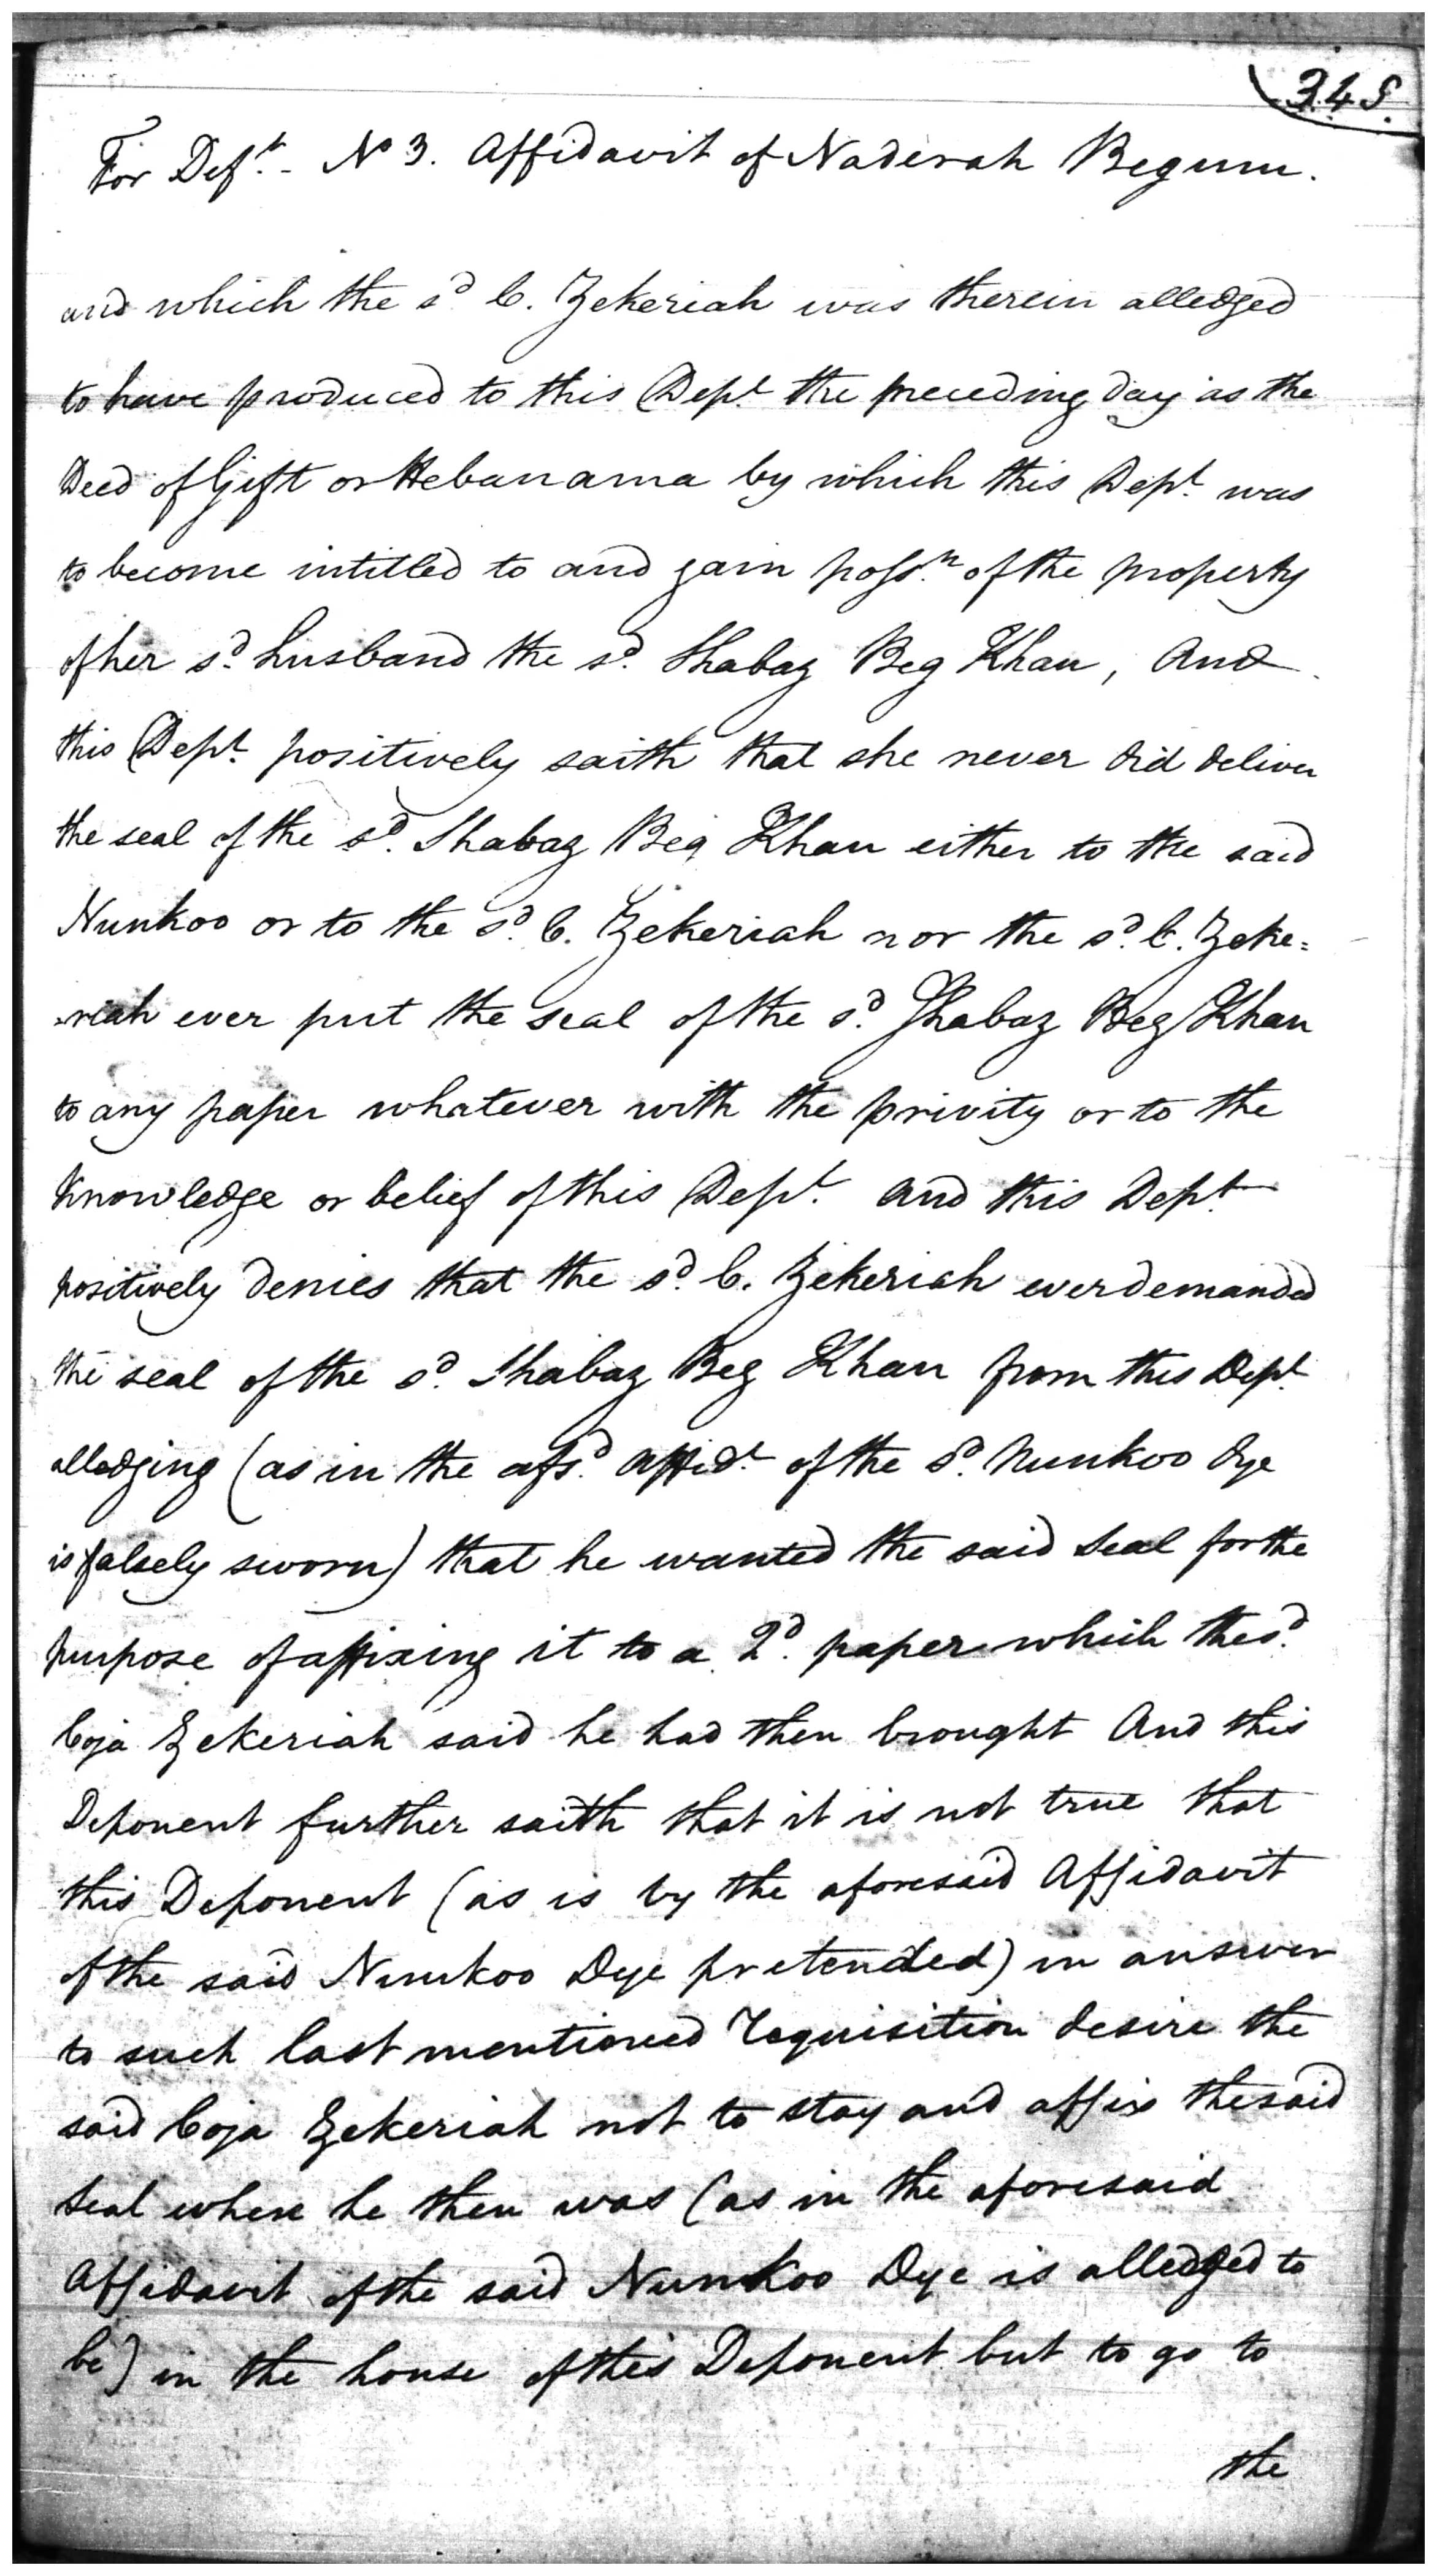 345.
For Deft. - No 3. Affidavit of Naderah Begum.
and which the sd C. Zekeriah was therein alledged
to have produced to this Dept the preceding day as the
Deed of Gift or Hebanama by which this Dept. was
to become intitled to and gain possn. of the property
of her sd. husband the sd. Shabaz Beg Khan, And
this Dept. positively saith that she never did deliver
the seal of the sd. Shabaz Beg Khan either to the said
Nunkoo or to the sd. C. Zekeriah nor the sd. C. Zeke=
=riah ever put the seal of the sd. Shabaz Beg Khan
to any paper whatever with the privity or to the
knowledge or belief of this Dept. and this Dept.
positively denies that the sd. C. Zekeriah ever demanded
the seal of the sd. Shabaz Beg Khan from this Dept.
alledging (as in the afsd. affidt. of the sd. Nunkoo Dye
is falsely sworn) that he wanted the said Seal for the
purpose of affixing it to a 2d. paper which the sd.
Coja Zekeriah said he had then brought And this
Deponent further saith that it is not true that
this Deponent (as is by the aforesaid Affidavit
of the said Nunkoo Dye pretended) in answer
to such last mentioned requisition desire the
said Coja Zekeriah not to stay and affix the said
Seal where he then was (as in the aforesaid
Affidavit of the said Nunkoo Dye is alledged to
be) in the house of this Deponent but to go to
the